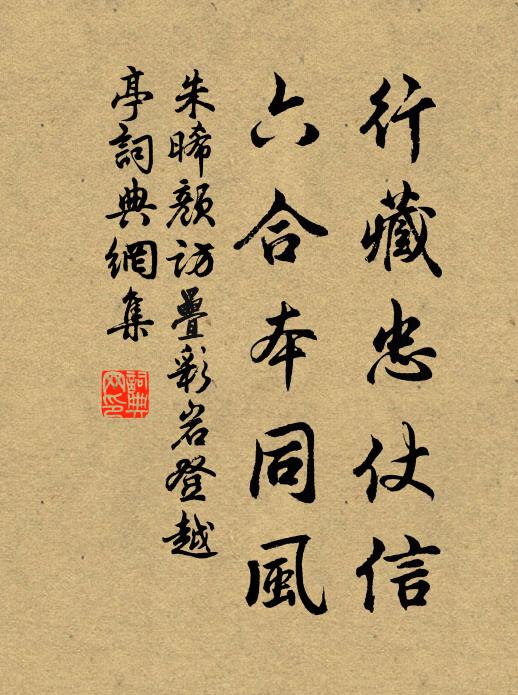 行藏忠仗信
六合本同風
朱晞顏訪疊彩岩登越
亭詞典網集
詞典